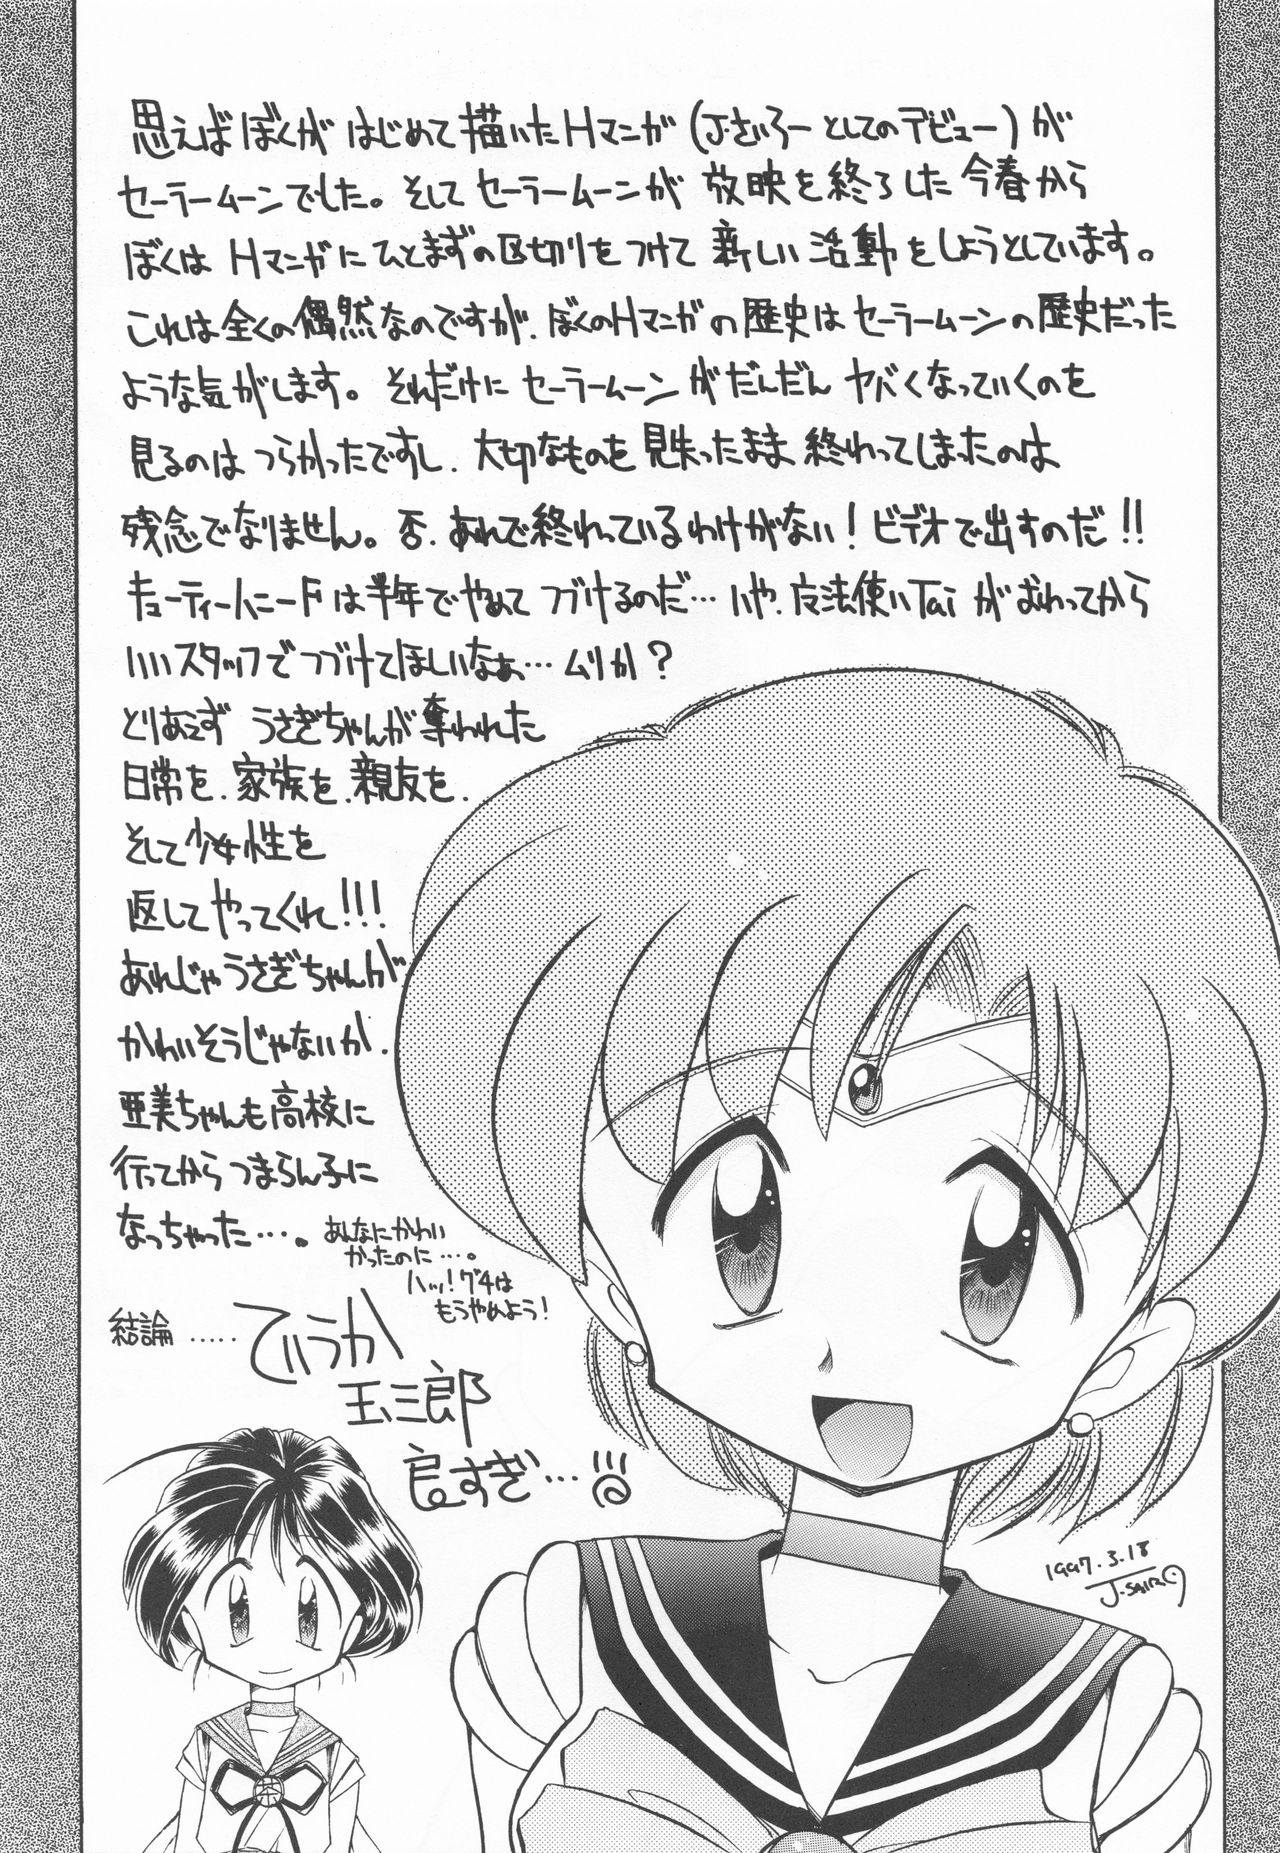 思えばぼくがはじめて描いたHマンガ(J・さいろーとしてのデビュー)が
セーラームーンでした。そしてセーラームーンが放映を終了した今春から
ぼくはHマンガにひとまずの区切りをつけて新しい活動をしようとしています。
これは全くの偶然なのですが、ぼくのHマンガの歴史はセーラームーンの歴史だった
ような気がします。それだけにセーラームーンがだんだんヤバくなっていくのを
見るのはつらかったですし、大切なものを見失ったまま終わってしまったのは
残念でなりません。否、あれで終れているわけがない!ビデオで出すのだ!!
キューティーハニーFは半年でやめてつづけるのだ…いや、魔法使いTaiがおわってから
いいスタッフでつづけてほしいなぁ…ムリか?
とりあえずうさぎちゃんが奪われた
日常を、家族を、親友を、
そして少女性を
返してやってくれ!!!
あれじゃうさぎちゃんが
かわいそうじゃないか、
亜美ちゃんも高校に
行ってからつまらん子に
なっちゃった…。
あんなにかわい
かったのに…。
ハッ!グチは
もうやめよう!
結論……ていうか
玉三郎
良すぎ…
1997.3.18
J・SAIRO